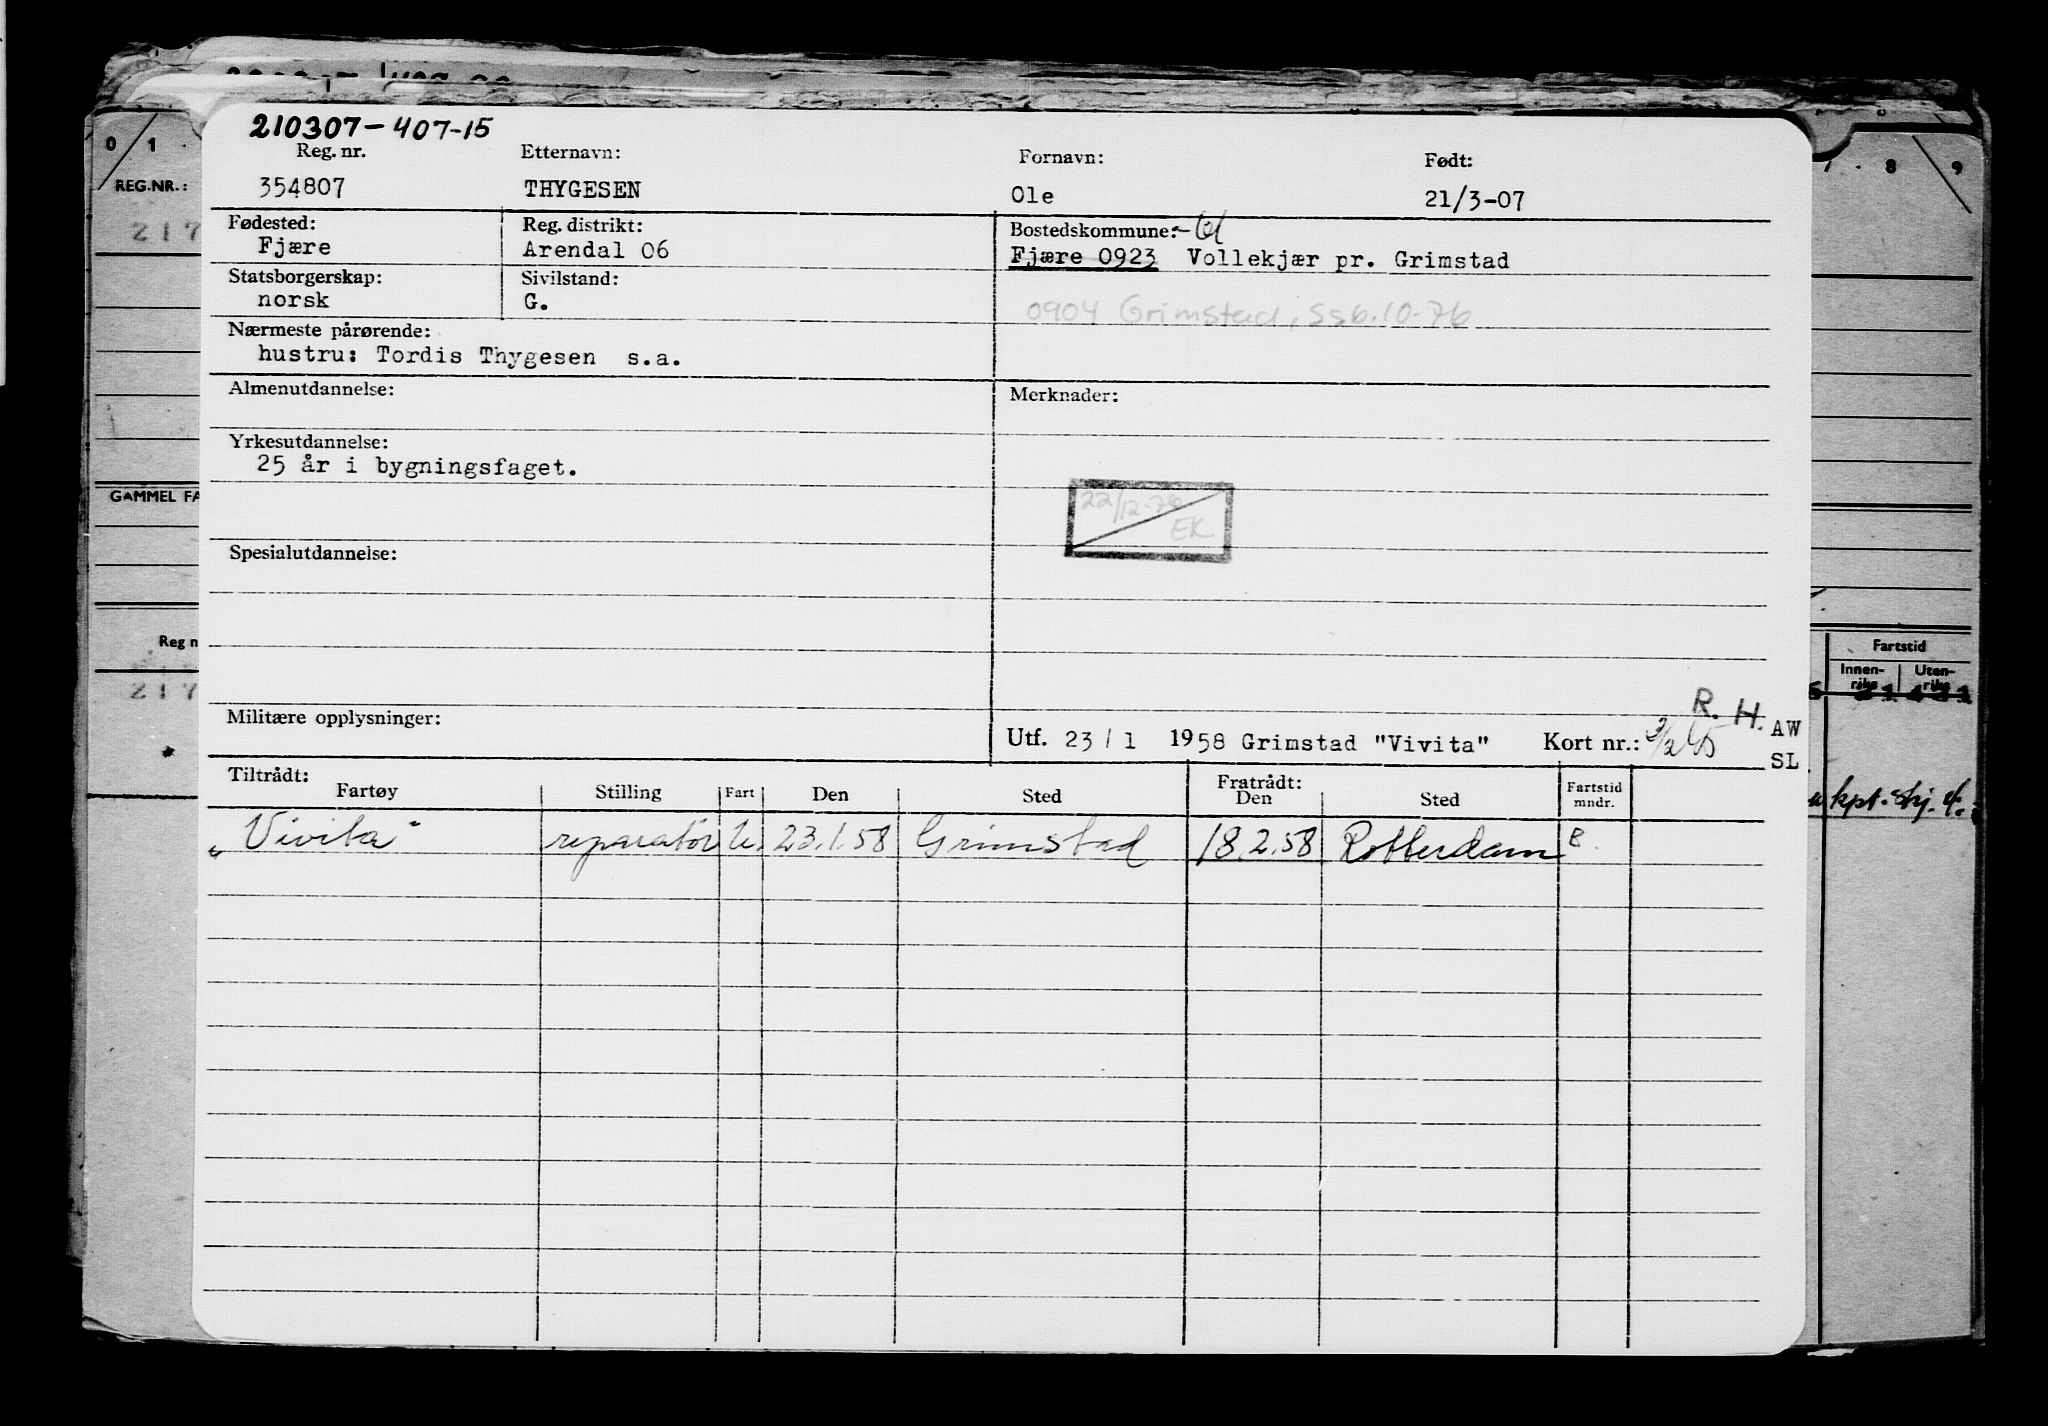 210307-407-15
Reg. nr. Etternavn: Fornavn: Født:
354807 THYGESEN Ole 21/3-07
Fødested: Reg. distrikt: Bostedskommune:
Fjære Arendal 06 Fjære 0923 Vollekjær pr. Grimstad
Statsborgerskap: Sivilstand:
norsk G. 0904 Grimstad, Ssb.10-76
Nærmeste pårørende:
hustru: Tordis Thygesen s.a.
Almenutdannelse: Merknader:
Yrkesutdannelse:
25 år i bygningsfaget.
22/12-78
EK
Spesialutdannelse:
R. H.
Militære opplysninger:
Utf. 23 / 1 1958 Grimstad "Vivita" Kort nr.: AW
SL
Tiltrådt: Fratrådt:
Fartøy Stilling Fart Den Sted Den Sted Fartstid mndr.
"Vivita" reparatör U. 23.1.58 Grimstad 18.2.58 Rotterdam B.
0 1 8 9
REG.NR.:
217
GAMMEL FA
Reg n
217
Fartstid
Innen-
rike
Uten-
rike
kpt. skj. 4.